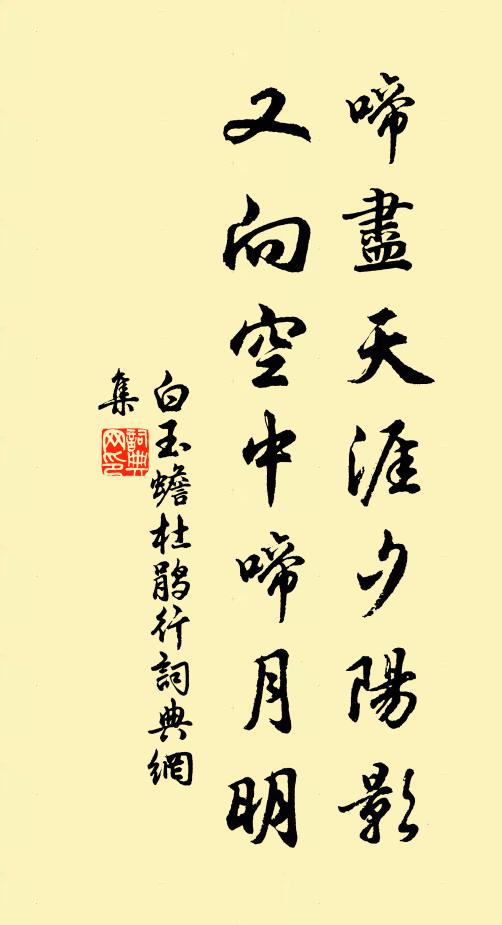 啼盡天涯夕陽影
又向空中啼月明
白玉蟾杜鹃行詞典網
集
詞典网印